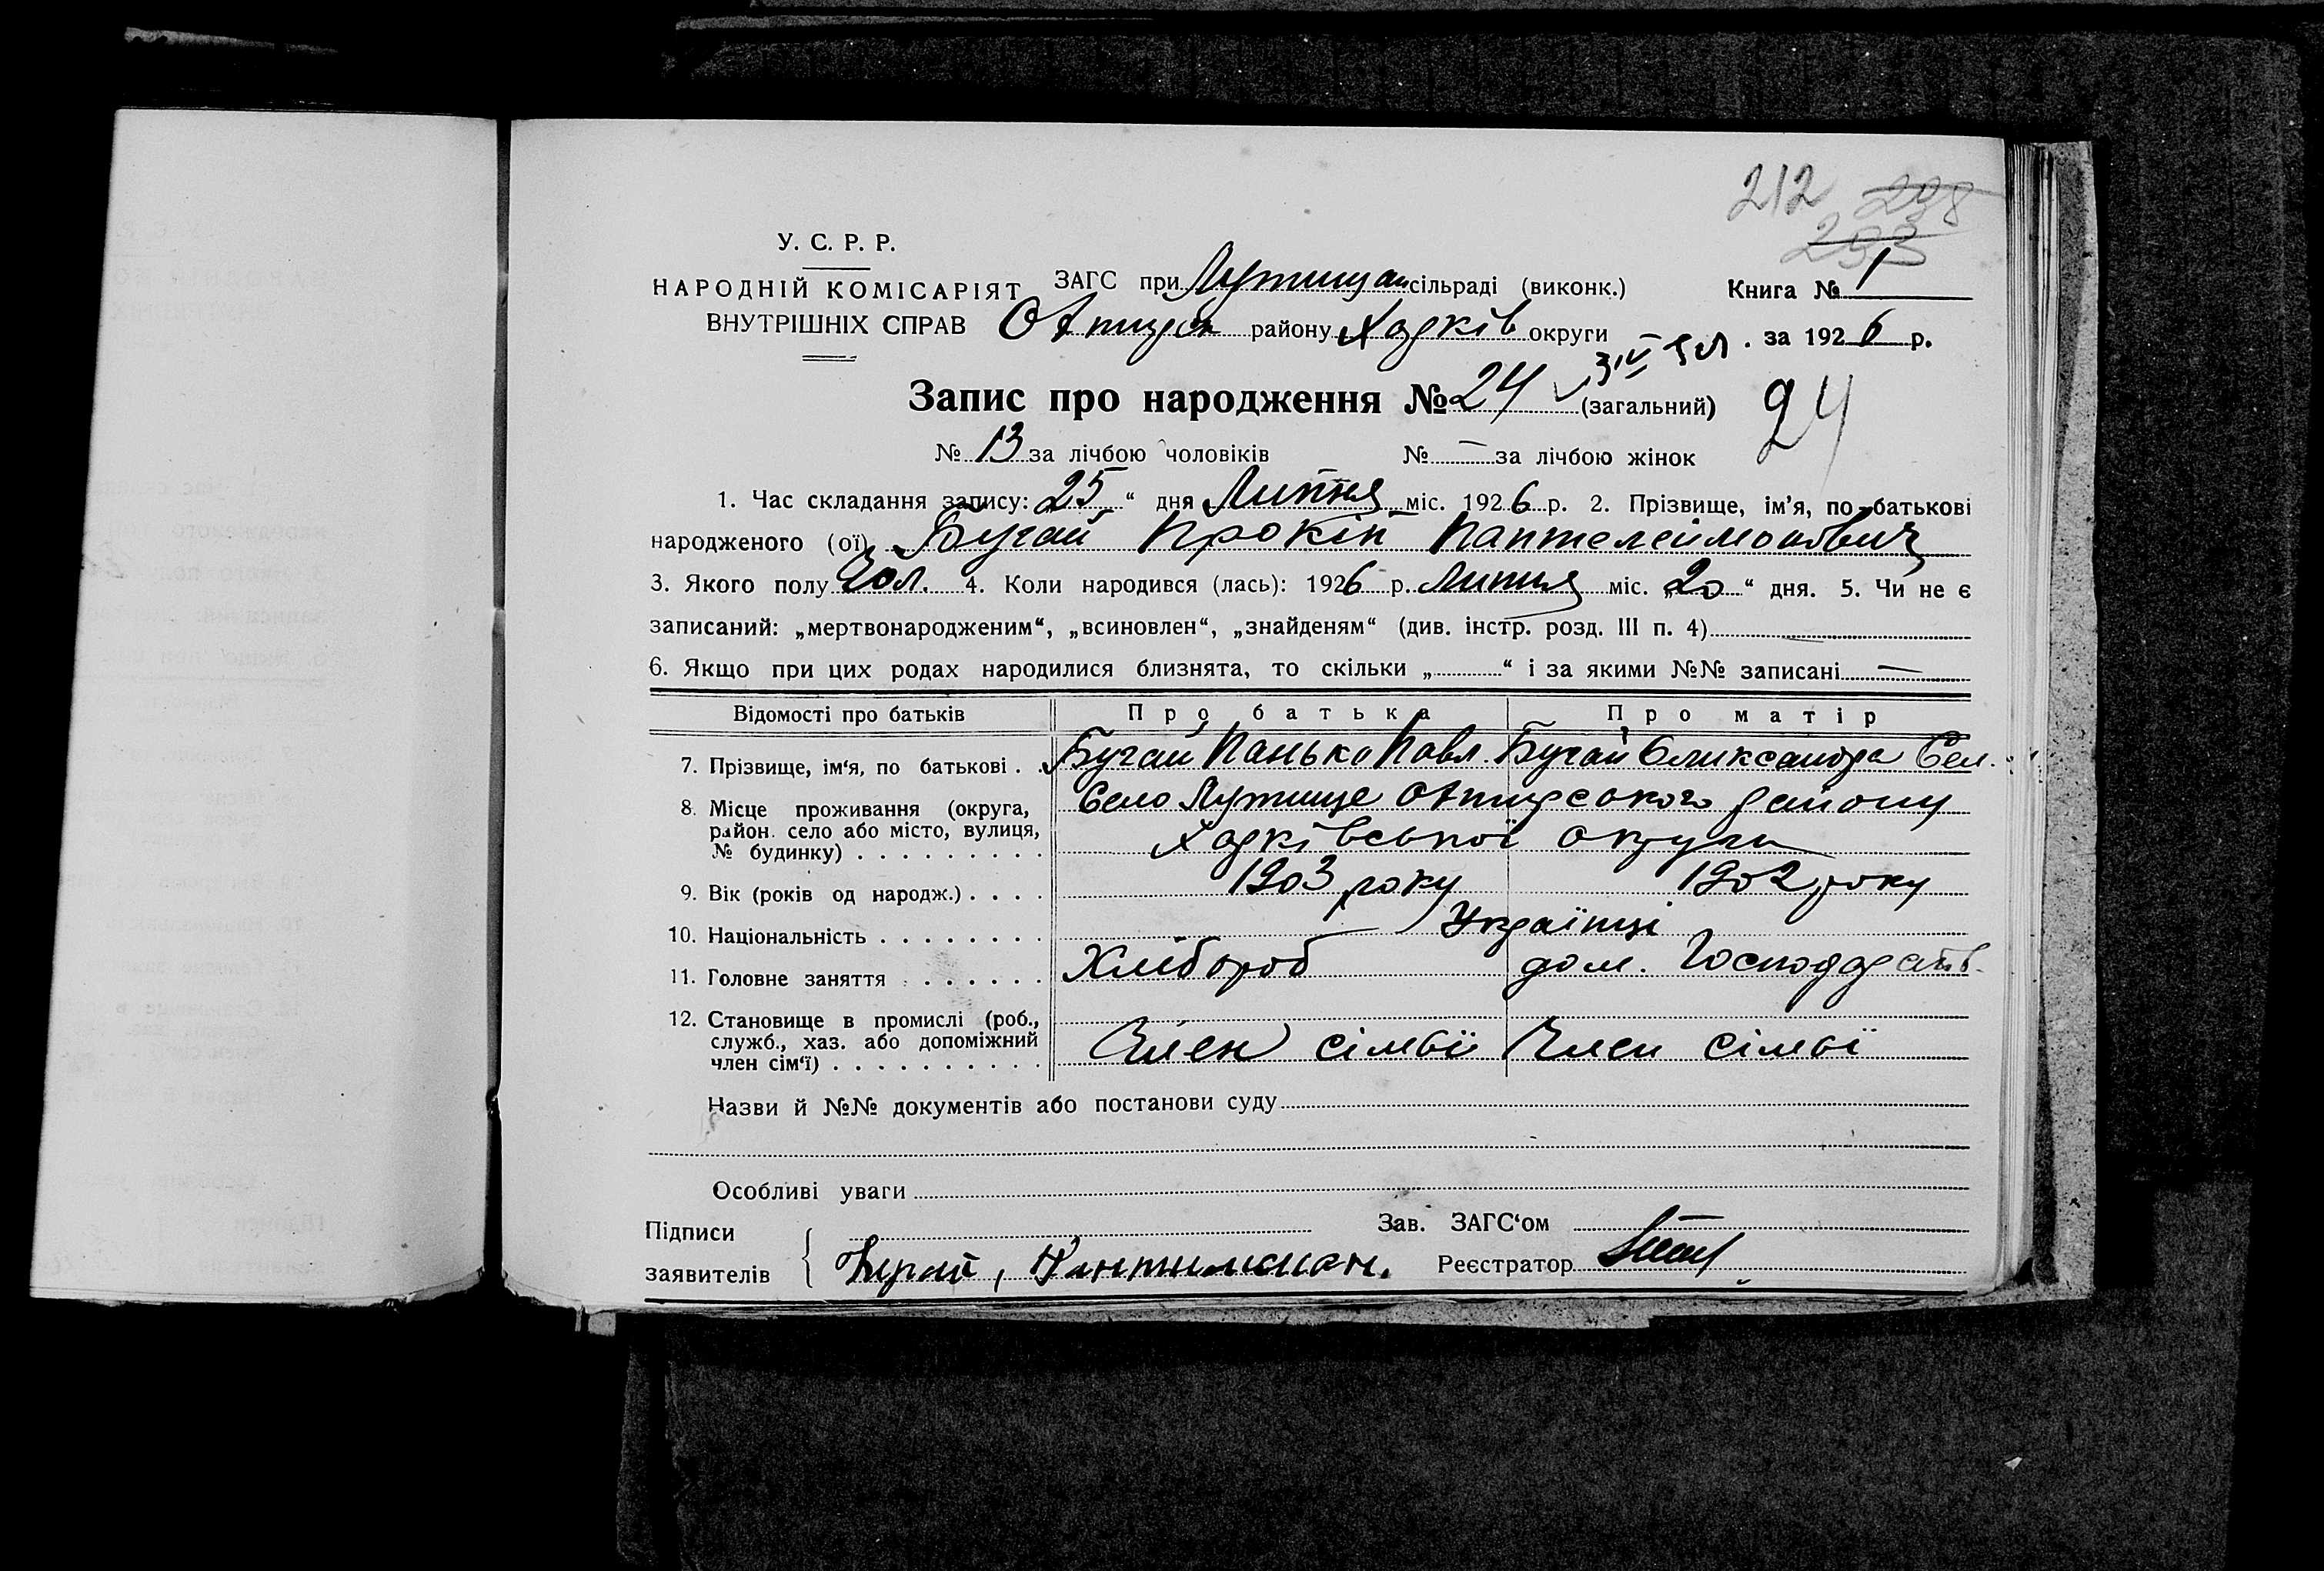 212 208
293
У. С. Р. Р.
НАРОДНІЙ КОМІСАРІЯТ
ВНУТРІШНІХ СПРАВ
ЗАГС при Лутищан сільраді (виконк.)
Книга № 1
району Харків округи
за 1926 р.
Запис про народження № 24 (загальний) 24
№ 13 за лічбою чоловіків № — за лічбою жінок
1. Час складання запису: „25“ дня Липня міс. 1926 р. 2. Прізвище, ім'я, по-батькові
народженого (ої) Бугай Прокіп Пантелеймонович
3. Якого полу Чол. 4. Коли народився (лась): 1926 р. Липня міс. „20“ дня. 5. Чи не є
записаний: „мертвонародженим“, „всиновлен“, „знайденям“ (див. інстр. розд. III п. 4)
6. Якщо при цих родах народилися близнята, то скільки „ “ і за якими №№ записані —
Відомості про батьків Про батька Про матір
7. Прізвище, ім'я, по батькові . . Бугай Панько Павл. Бугай Олександра Сем.
8. Місце проживання (округа, район. село або місто, вулиця, № будинку) . . . . . . . . . Село Лутище Охтирського району
Харківської округи
9. Вік (років од народж.) . . . . 1903 року 1902 року
10. Національність . . . . . . . . Українці
11. Головне заняття . . . . . . . Хлібороб дом. Господарств.
12. Становище в промислі (роб., служб., хаз. або допоміжний член сім'ї) . . . . . . . . . . Член сімьї Член сімьї
Назви й №№ документів або постанови суду
Особливі уваги
Підписи
заявителів
Бугай, Пантилимон.
Зав. ЗАГС'ом
Реєстратор